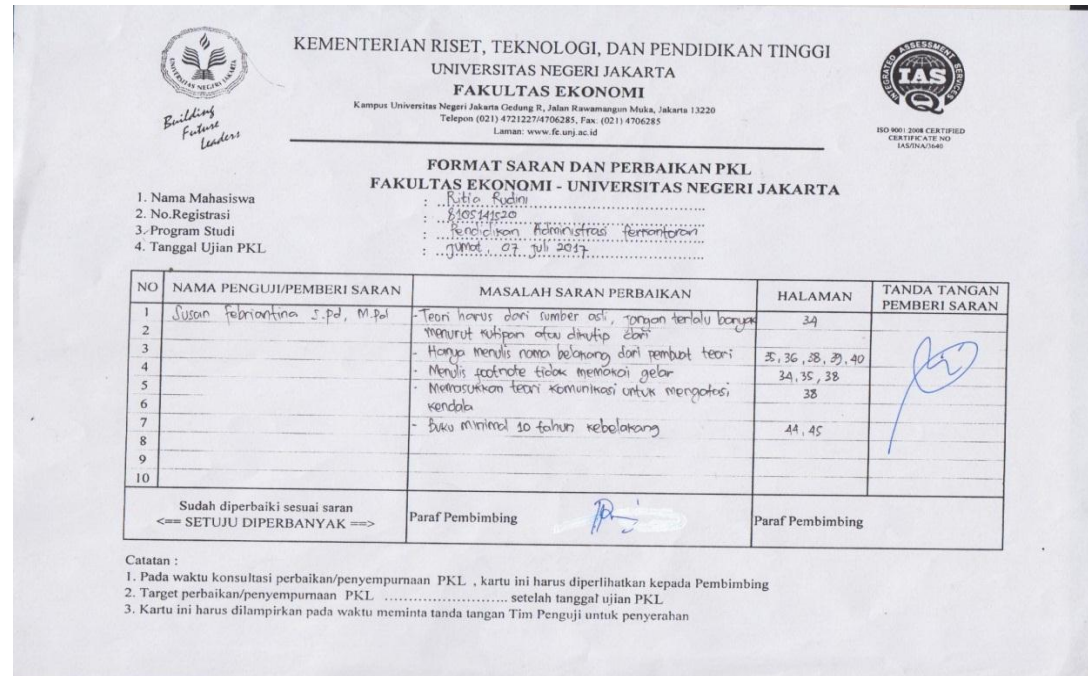 KEMENTERIAN RISET, TEKNOLOGI, DAN PENDIDIKAN TINGGI
UNIVERSITAS NEGERI JAKARTA
FAKULTAS EKONOMI
Kampus Universitas Negeri Jakarta Gedung R, Jalan Rawamangun Muka, Jakarta 13220
Telepon (021) 4721227/4706285, Fax. (021) 4706285
Laman: www.fe.unj.ac.id
Building
Future
Leaders
INTEGRATED ASSESSMENT SERVICES
IAS
ISO 9001:2008 CERTIFIED
CERTIFICATE NO
IAS/INA/3640
FORMAT SARAN DAN PERBAIKAN PKL
FAKULTAS EKONOMI - UNIVERSITAS NEGERI JAKARTA
1. Nama Mahasiswa : Ritia Rudini
2. No.Registrasi : 8105141520
3. Program Studi : Pendidikan Administrasi Perkantoran
4. Tanggal Ujian PKL : Jumat, 07 Juli 2017
NO NAMA PENGUJI/PEMBERI SARAN MASALAH SARAN PERBAIKAN HALAMAN TANDA TANGAN PEMBERI SARAN
1 Susan Febriantina S.Pd, M.Pd - Teori harus dari sumber asli, jangan terlalu banyak 34
2 menurut kutipan atau dikutip dari
3 - Hanya menulis nama belakang dari pembuat teori 35, 36, 38, 39, 40
4 - Menulis footnote tidak memakai gelar 34, 35, 38
5 - Memasukkan teori komunikasi untuk mengatasi 38
6 kendala
7 - Buku minimal 10 tahun kebelakang 44, 45
8
9
10
Sudah diperbaiki sesuai saran
<== SETUJU DIPERBANYAK ==>
Paraf Pembimbing
Paraf Pembimbing
Catatan :
1. Pada waktu konsultasi perbaikan/penyempurnaan PKL , kartu ini harus diperlihatkan kepada Pembimbing
2. Target perbaikan/penyempurnaan PKL ........................ setelah tanggal ujian PKL
3. Kartu ini harus dilampirkan pada waktu meminta tanda tangan Tim Penguji untuk penyerahan